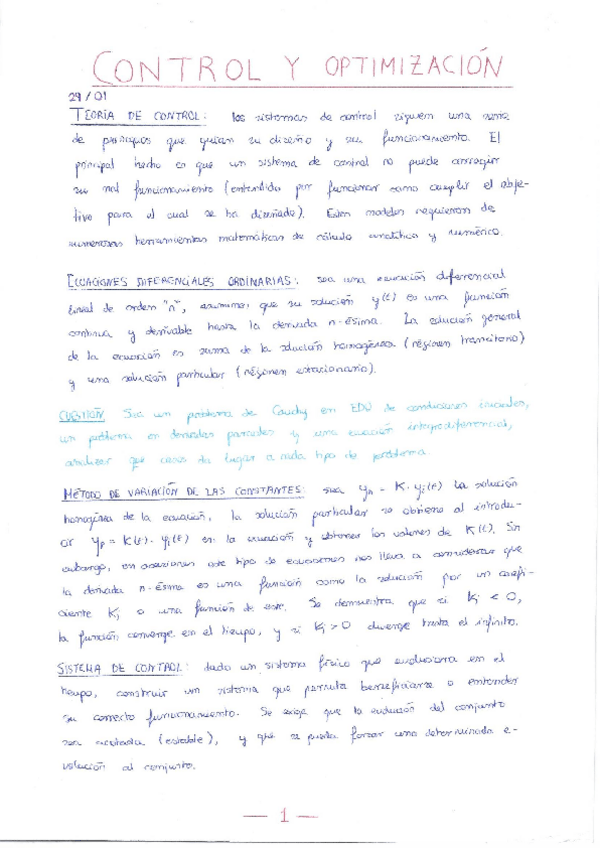 CONTROL Y OPTIMIZACIÓN
29/01
TEORÍA DE CONTROL: los sistemas de control siguen una serie
de principios que guían su diseño y su funcionamiento. El
principal hecho es que un sistema de control no puede corregir
su mal funcionamiento (entendido por funcionar como cumplir el obje-
tivo para el cual se ha diseñado). Estos modelos requieren de
numerosas herramientas matemáticas de cálculo analítico y numérico.
ECUACIONES DIFERENCIALES ORDINARIAS: sea una ecuación diferencial
lineal de orden "n", asumimos que su solución y(t) es una función
continua y derivable hasta la derivada n-ésima. La solución general
de la ecuación es suma de la solución homogénea (régimen transitorio)
y una solución particular (régimen estacionario).
CUESTIÓN: Sea un problema de Cauchy en EDO de condiciones iniciales,
un problema en derivadas parciales y una ecuación integrodiferencial,
analizar que casos da lugar a cada tipo de problema.
MÉTODO DE VARIACIÓN DE LAS CONSTANTES: sea yₕ = K·yᵢ(t) la solución
homogénea de la ecuación, la solución particular se obtiene al introdu-
cir yₚ = K(t)·yᵢ(t) en la ecuación y obtener los valores de K(t). Sin
embargo, en ocasiones este tipo de ecuaciones nos lleva a considerar que
la derivada n-ésima es una función como la solución por un coefi-
ciente Kᵢ o una función de este. Se demuestra que si Kᵢ < 0,
la función converge en el tiempo, y si Kᵢ > 0 diverge hasta el infinito.
SISTEMA DE CONTROL: dado un sistema físico que evoluciona en el
tiempo, construir un sistema que permita beneficiarse o entender
su correcto funcionamiento. Se exige que la evolución del conjunto
sea acotada (estable), y que se pueda forzar una determinada e-
volución al conjunto.
— 1 —